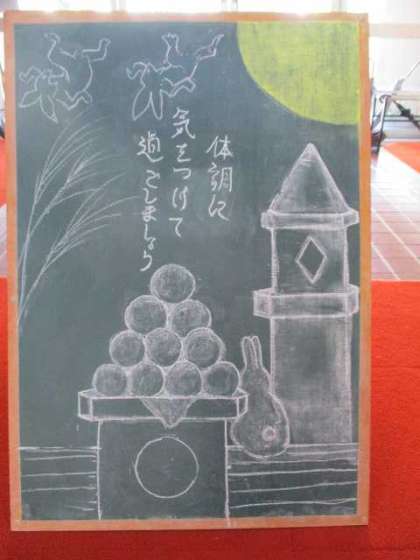 体調に
気をつけて
過ごしましょう